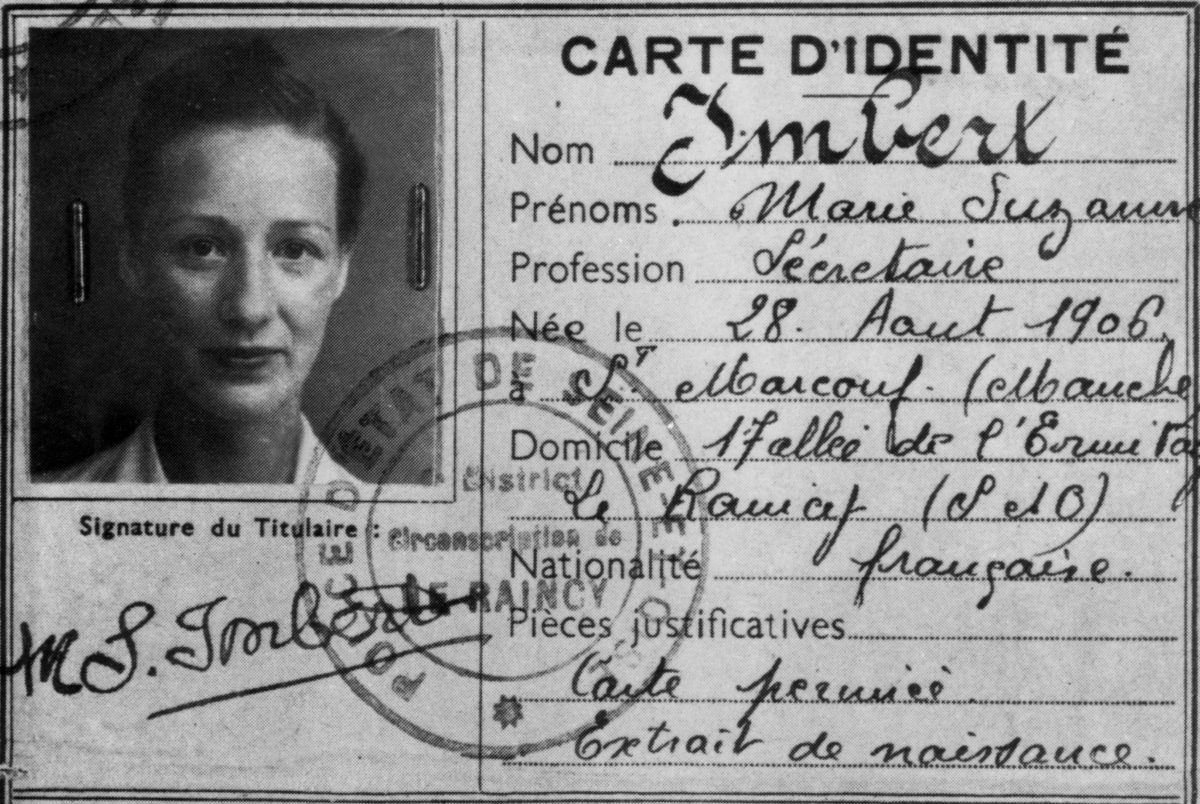 CARTE D'IDENTITÉ
Nom Imbert
Prénoms Marie Suzanne
Profession Sécretaire
Née le 28. Aout 1906.
à St Marcouf. (Manche
Domicile 17 allée de l'Ermitag
Le Raincy (S et O)
Nationalité française.
Pièces justificatives
Carte perimée.
Extrait de naissance.
Signature du Titulaire :
M S. Imbert
POLICE D'ETAT DE SEINE-ET-O
District
Circonscription de
LE RAINCY